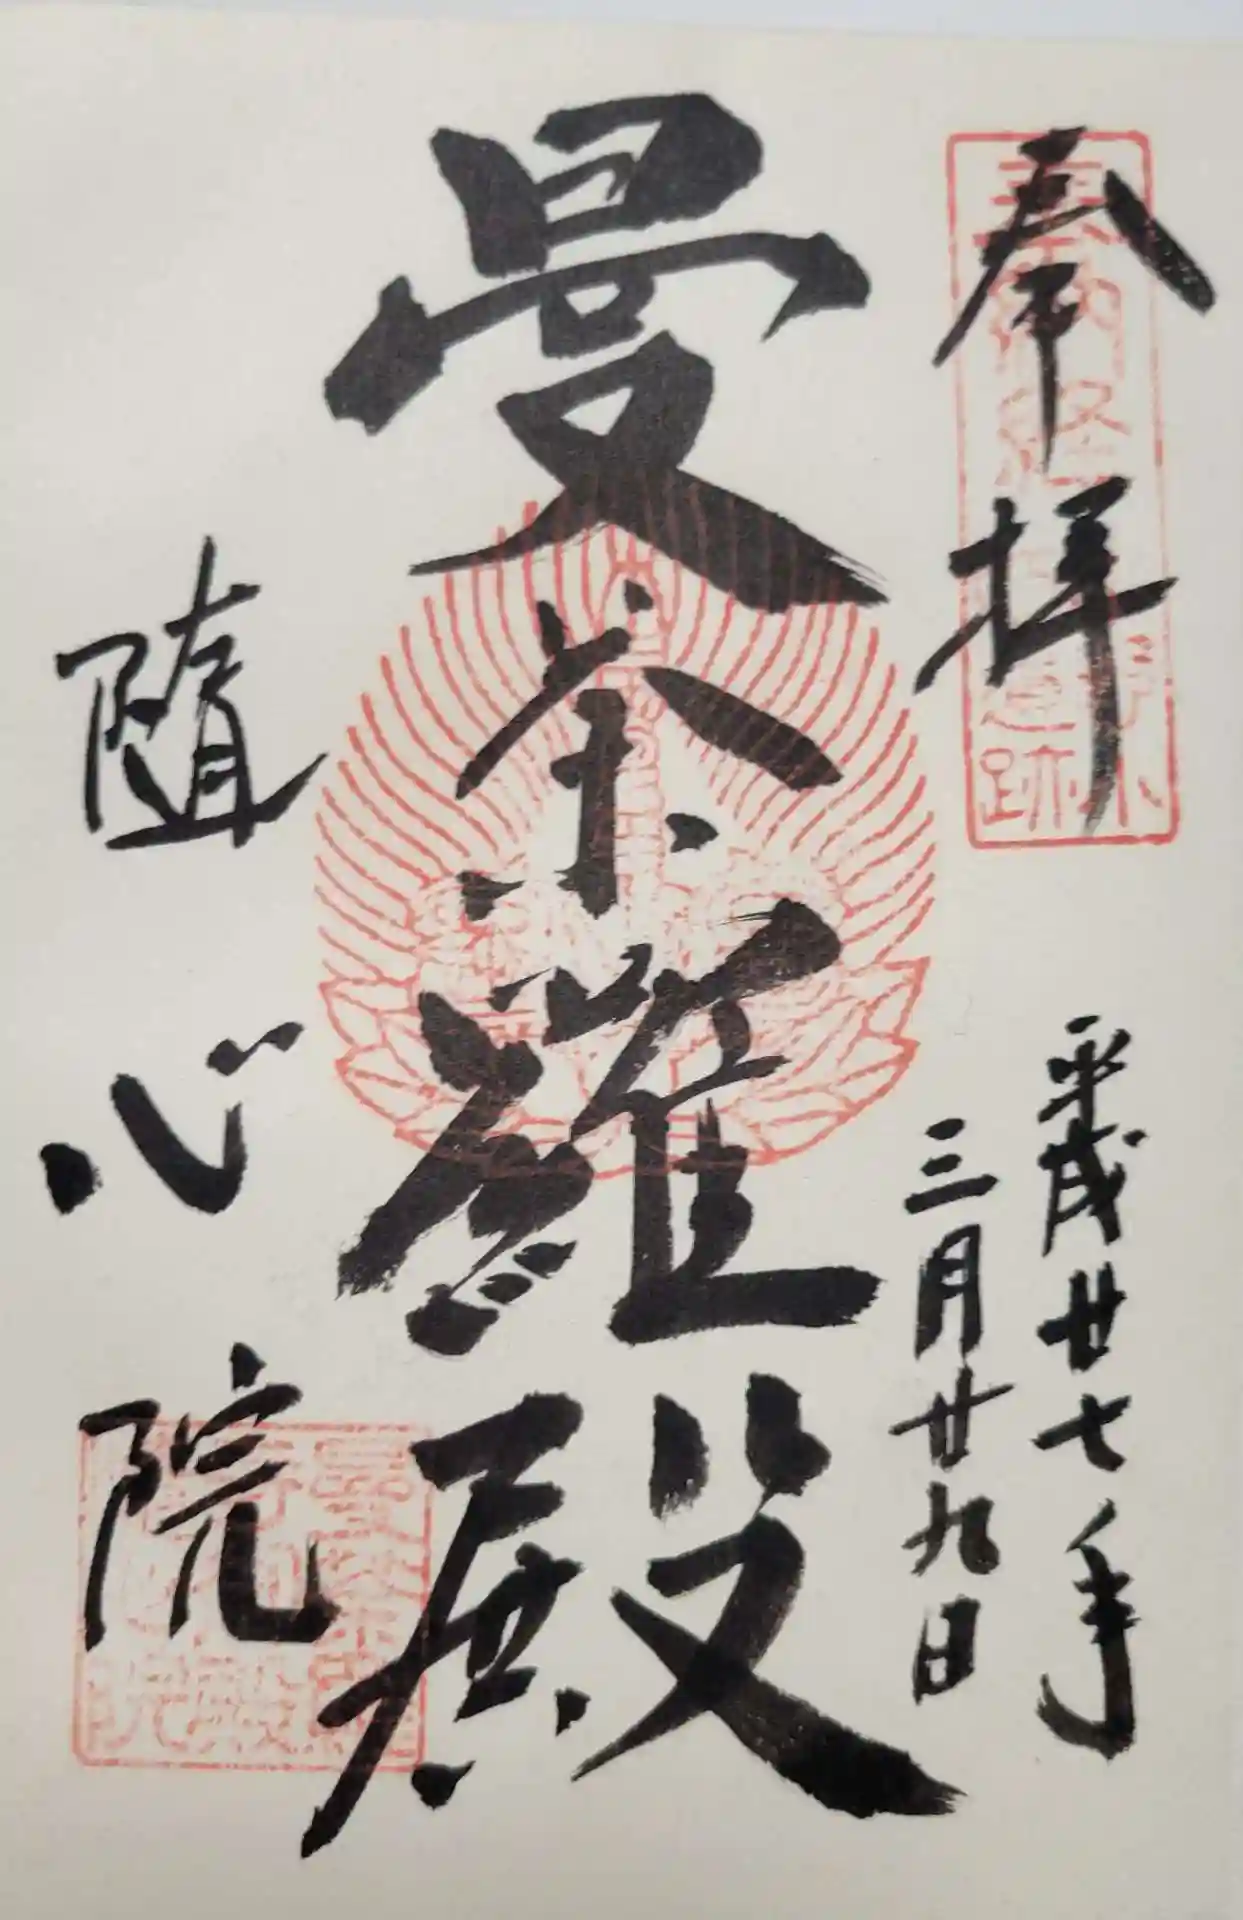 奉拝
平成廿七年
三月廿九日
曼荼羅殿
随心院